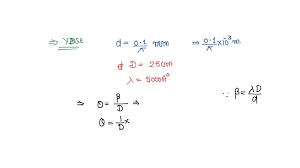 ⇒ YDSE d = 0.1/π mm ⇒ 0.1/π × 10⁻³ m
D = 25cm
λ = 5000A°
⇒ θ = β/D ⇒ ∵ β = λD/d
θ = 1/D x